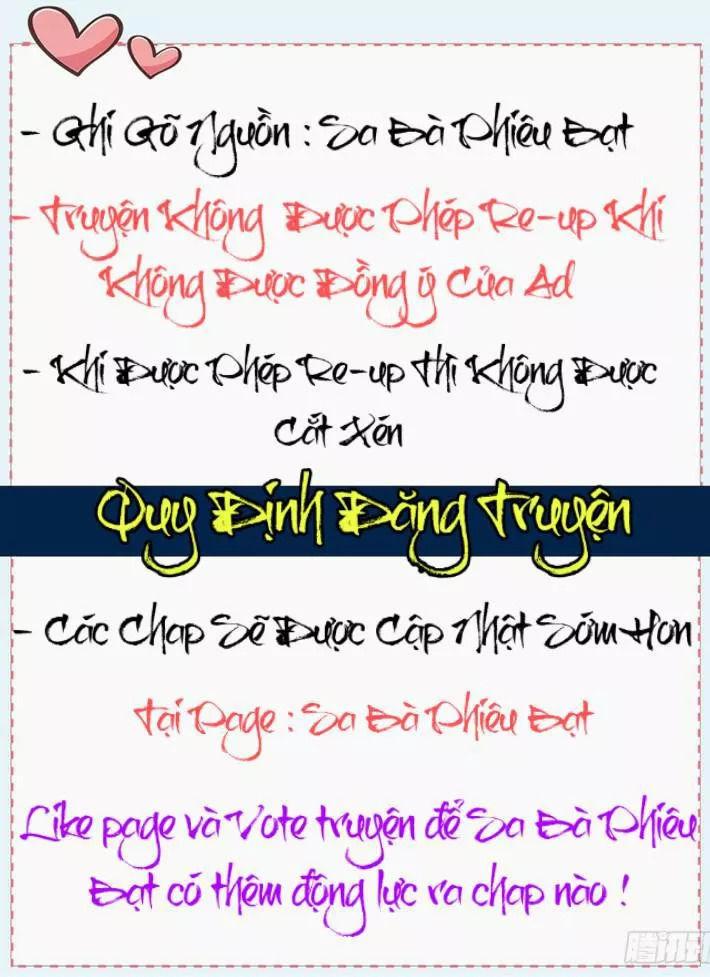 - Ghi Gõ Nguồn : Sa Bà Phiêu Bạt
- Truyện Không Được Phép Re-up Khi
Không Được Đồng ý Của Ad
- Khi Được Phép Re-up Thì Không Được
Cắt Xén
Quy Định Đăng Truyện
- Các Chap Sẽ Được Cập Nhật Sớm Hơn
Tại Page : Sa Bà Phiêu Bạt
Like page và Vote truyện để Sa Bà Phiêu
Bạt có thêm động lực ra chap nào !
腾讯